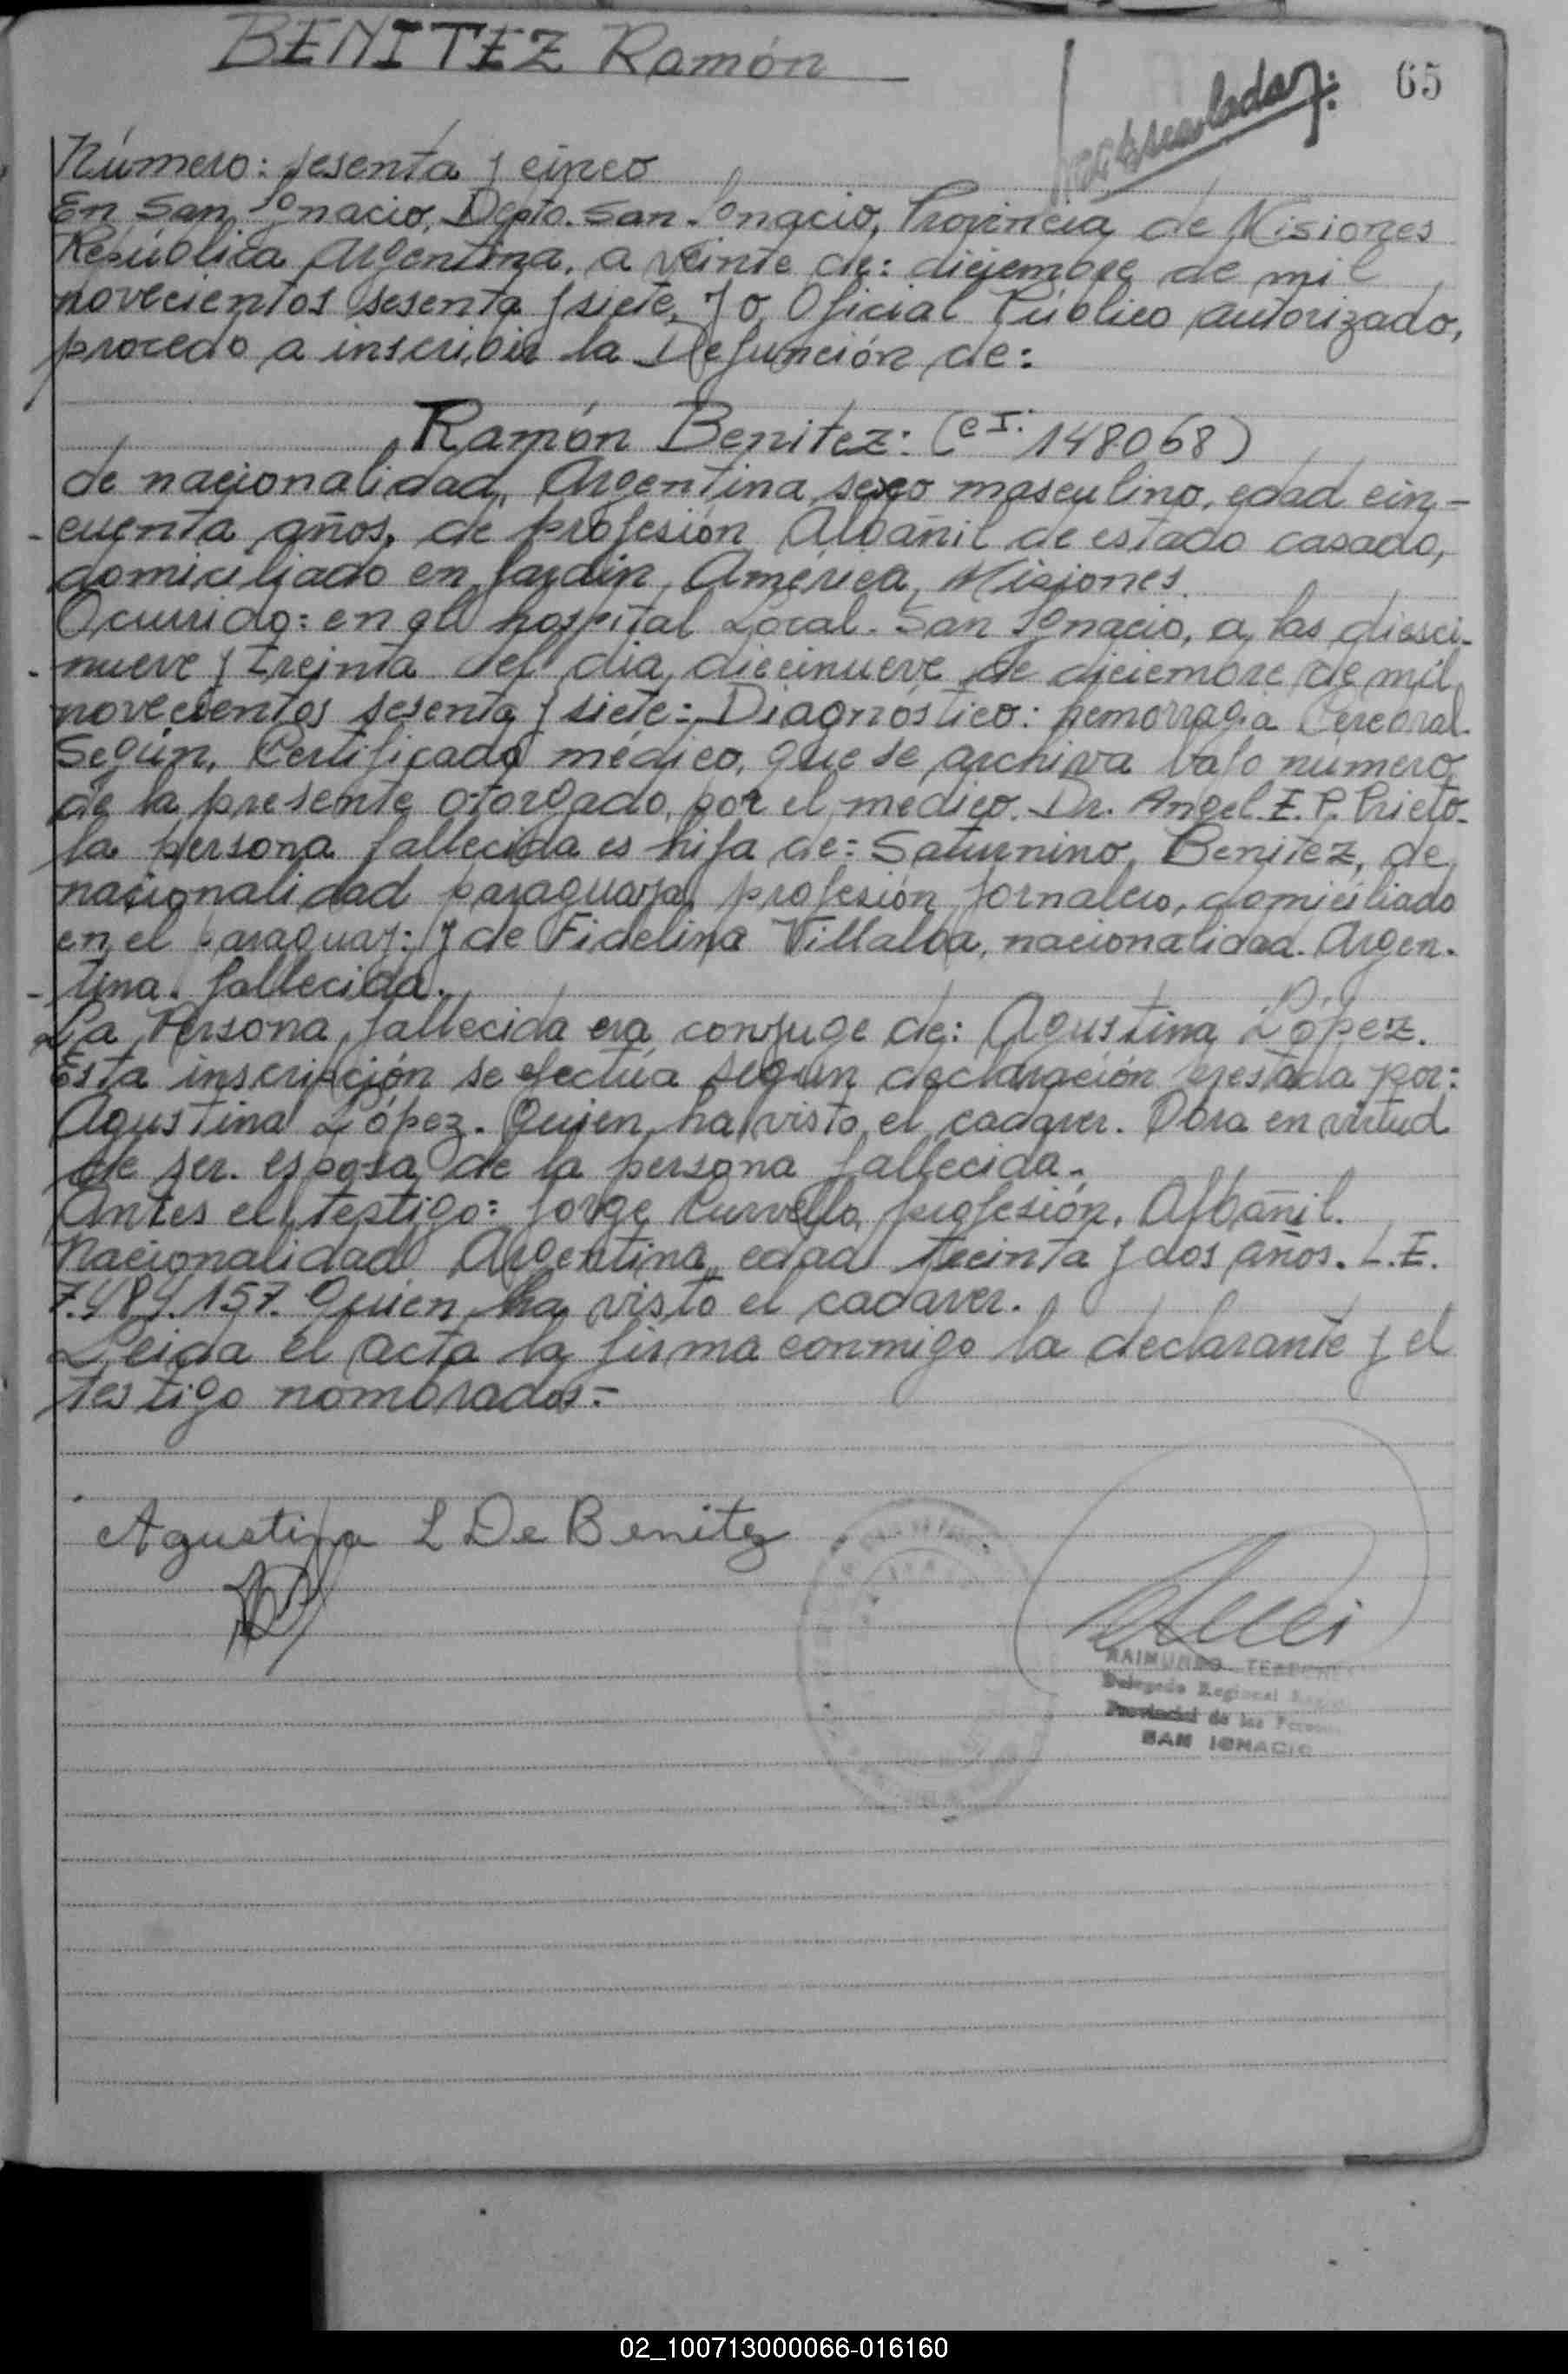 BENITEZ Ramón
65
Número: sesenta y cinco
En San Ignacio, Depto. San Ignacio, Provincia de Misiones
República Argentina, a veinte de: diciembre de mil
novecientos sesenta y siete, Yo Oficial Público autorizado,
procedo a inscribir la Defunción de:
Ramón Benitez: (C.I. 148068)
de nacionalidad, Argentina sexo masculino, edad cin-
cuenta años, de profesión Albañil de estado casado,
domiciliado en Jardin, América, Misiones.
Ocurrido: en el hospital Local. San Ignacio, a las diesci-
nueve y treinta del dia, diecinueve de diciembre de mil
novecientos sesenta y siete: Diagnóstico: hemorragia Cerebral.
Según, Certificado médico, que se archiva bajo número
de la presente otorgado, por el médico. Dr. Angel E. P. Prieto.
la persona fallecida es hija de: Saturnino, Benitez, de
nacionalidad paraguaya, profesión jornalero, domiciliado
en el Paraguay: y de Fidelina Villalba, nacionalidad. Argen-
tina. fallecida.
La Persona, fallecida era conyuge de: Agustina López.
Esta inscripción se efectúa según declaración prestada por:
Agustina López. Quien, ha visto, el cadaver. Obra en virtud
de ser. esposa de la persona fallecida.
Antes el testigo: Jorge Curvello, profesión, Albañil.
Nacionalidad Argentina, edad treinta y dos años. L.E.
7.484.157. Quien ha visto el cadaver.
Leida el acta la firma conmigo la declarante y el
testigo nombrados.-
Agustina L De Benitez
RAIMUNDO
Delegado Regional
Provincial de las
SAN IGNACIO
02_100713000066-016160